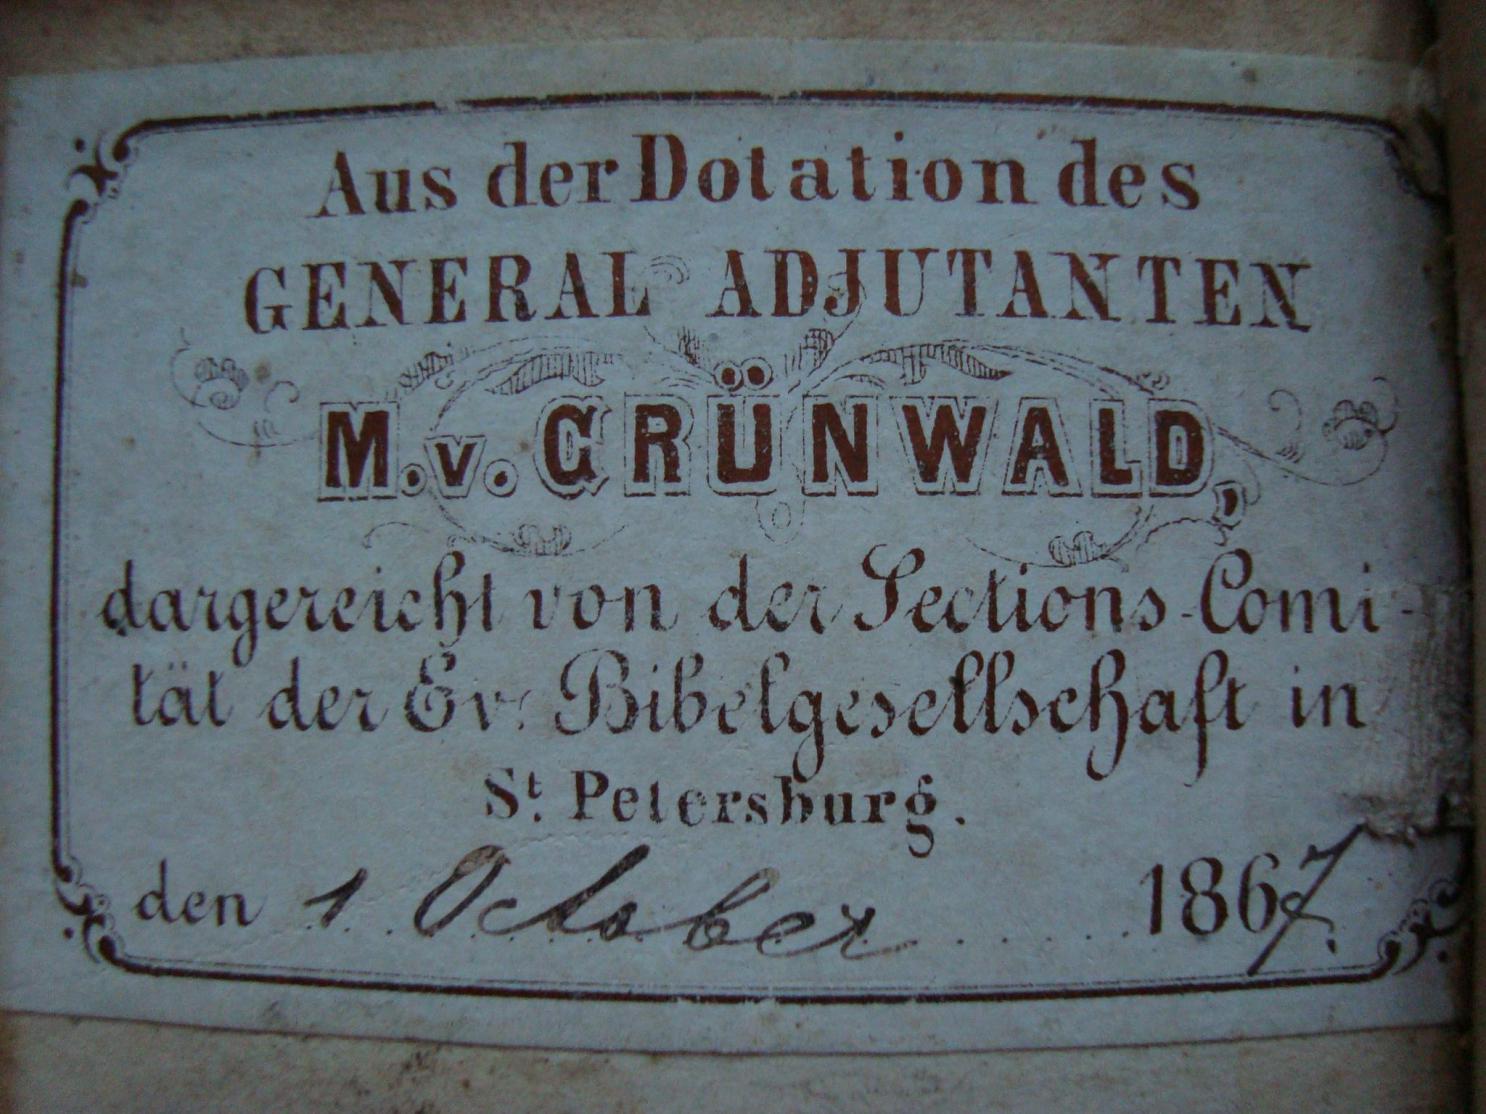 Aus der Dotation des
GENERAL ADJUTANTEN
M. v. GRÜNWALD,
dargereicht von der Sections-Comi-
tät der Ev. Bibelgesellschaft in
St. Petersburg.
den 1 October 1867.